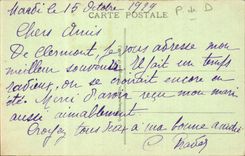 Mardi le 15 Octobre 1929
CARTE POSTALE
P. de D
Chers Amis
De Clermont, je vous adresse mon
meilleur souvenir. Il fait un temps
radieux, on se croirait encore en
été. Merci d'avoir reçu mon mari
aussi aimablement.
Croyez tous deux à ma bonne amitié